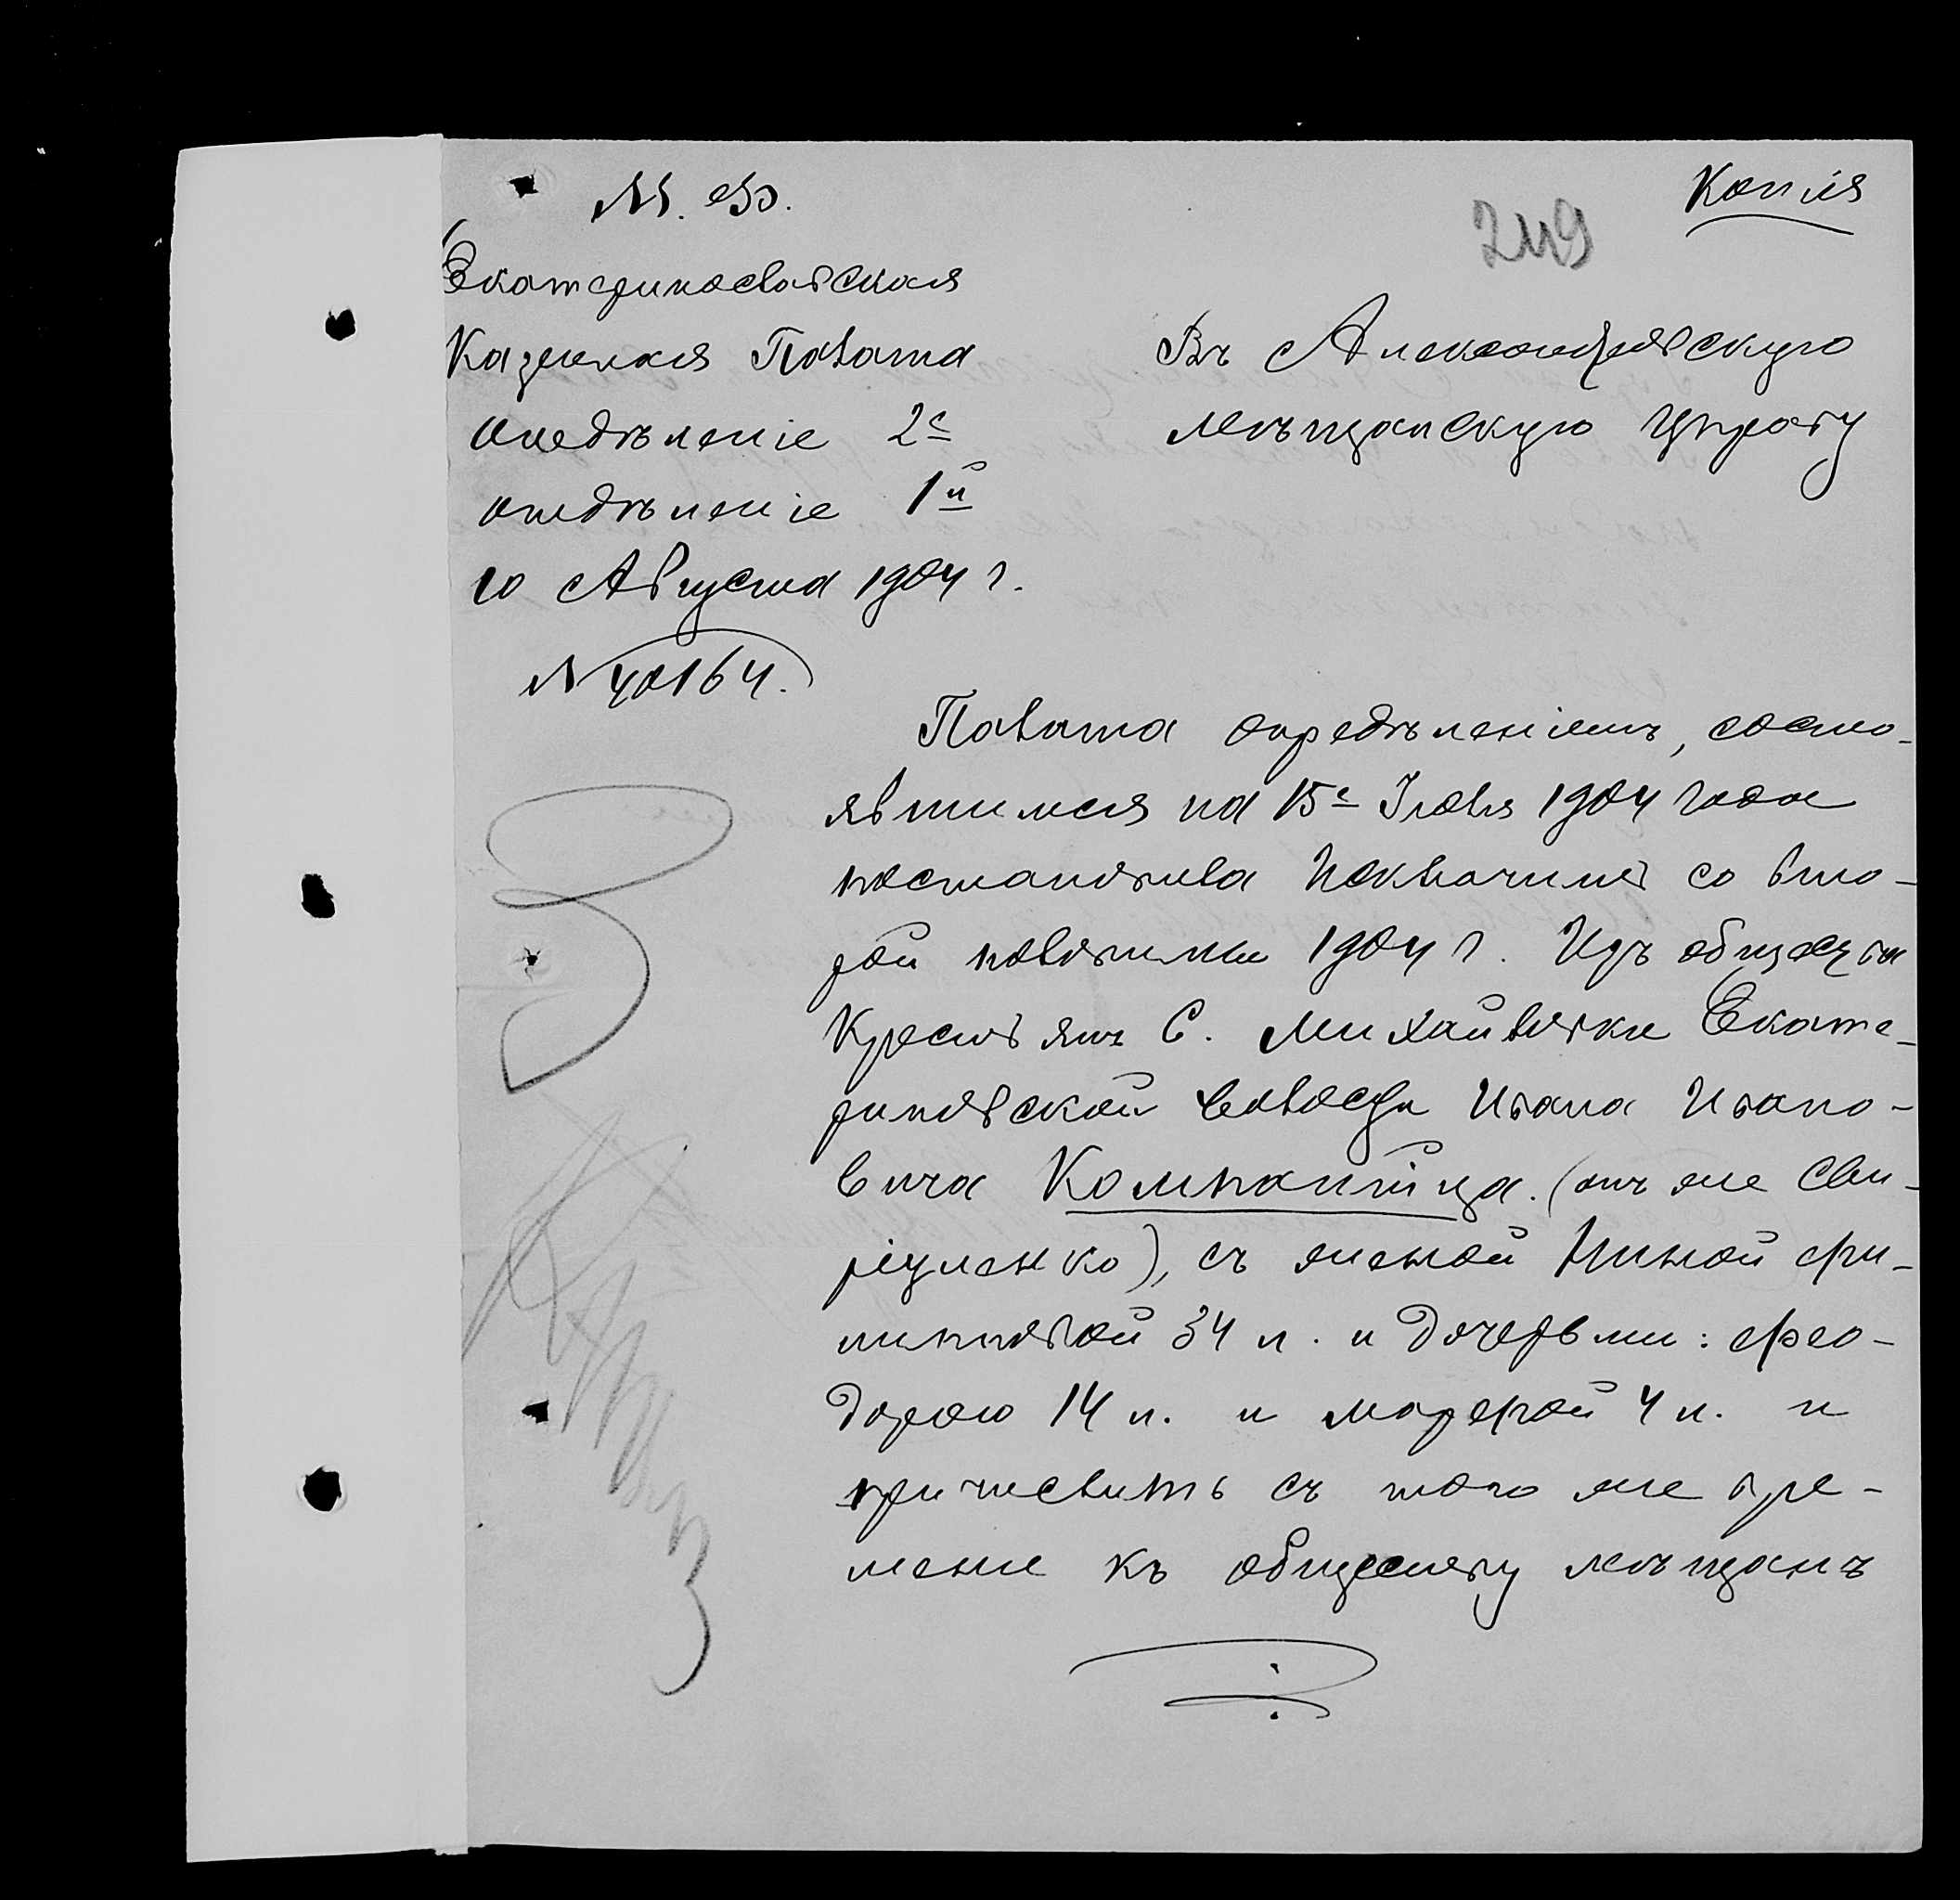 Копія
249
М. Ф.
Екатеринославская
Казенная Палата
Отдѣленіе 2е
отдѣленіе 1й
10 Августа 1904 г.
N 40164.
Въ Александровскую
мѣщанскую Управу
Палата опредѣленіемъ, состо-
явшимся на 15е Іюля 1904 года
постановила Исключить со вто-
рой половины 1904 г. Изъ общества
Крестьянъ С. Михайловки Екате-
риновской волости Ивана Ивано-
вича Компанійца. (онъ же Сви-
риденко), съ женой Ниной Фи-
липповой 34 л. и дочерьми: Фео-
дорою 14 л. и Марфой 4 л. и
причислить съ того же вре-
мени къ обществу мѣщанъ